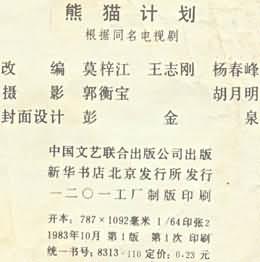 熊猫计划
根据同名电视剧
改 编 莫梓江 王志刚 杨春峰
摄 影 郭衡宝 胡月明
封面设计 彭 金 泉
中国文艺联合出版公司出版
新华书店北京发行所发行
一二〇一工厂制版印刷
开本:787×1092毫米 1/64印张2
1983年10月 第1版 第1次 印刷
统一书号:8313·110 定价:0.23元